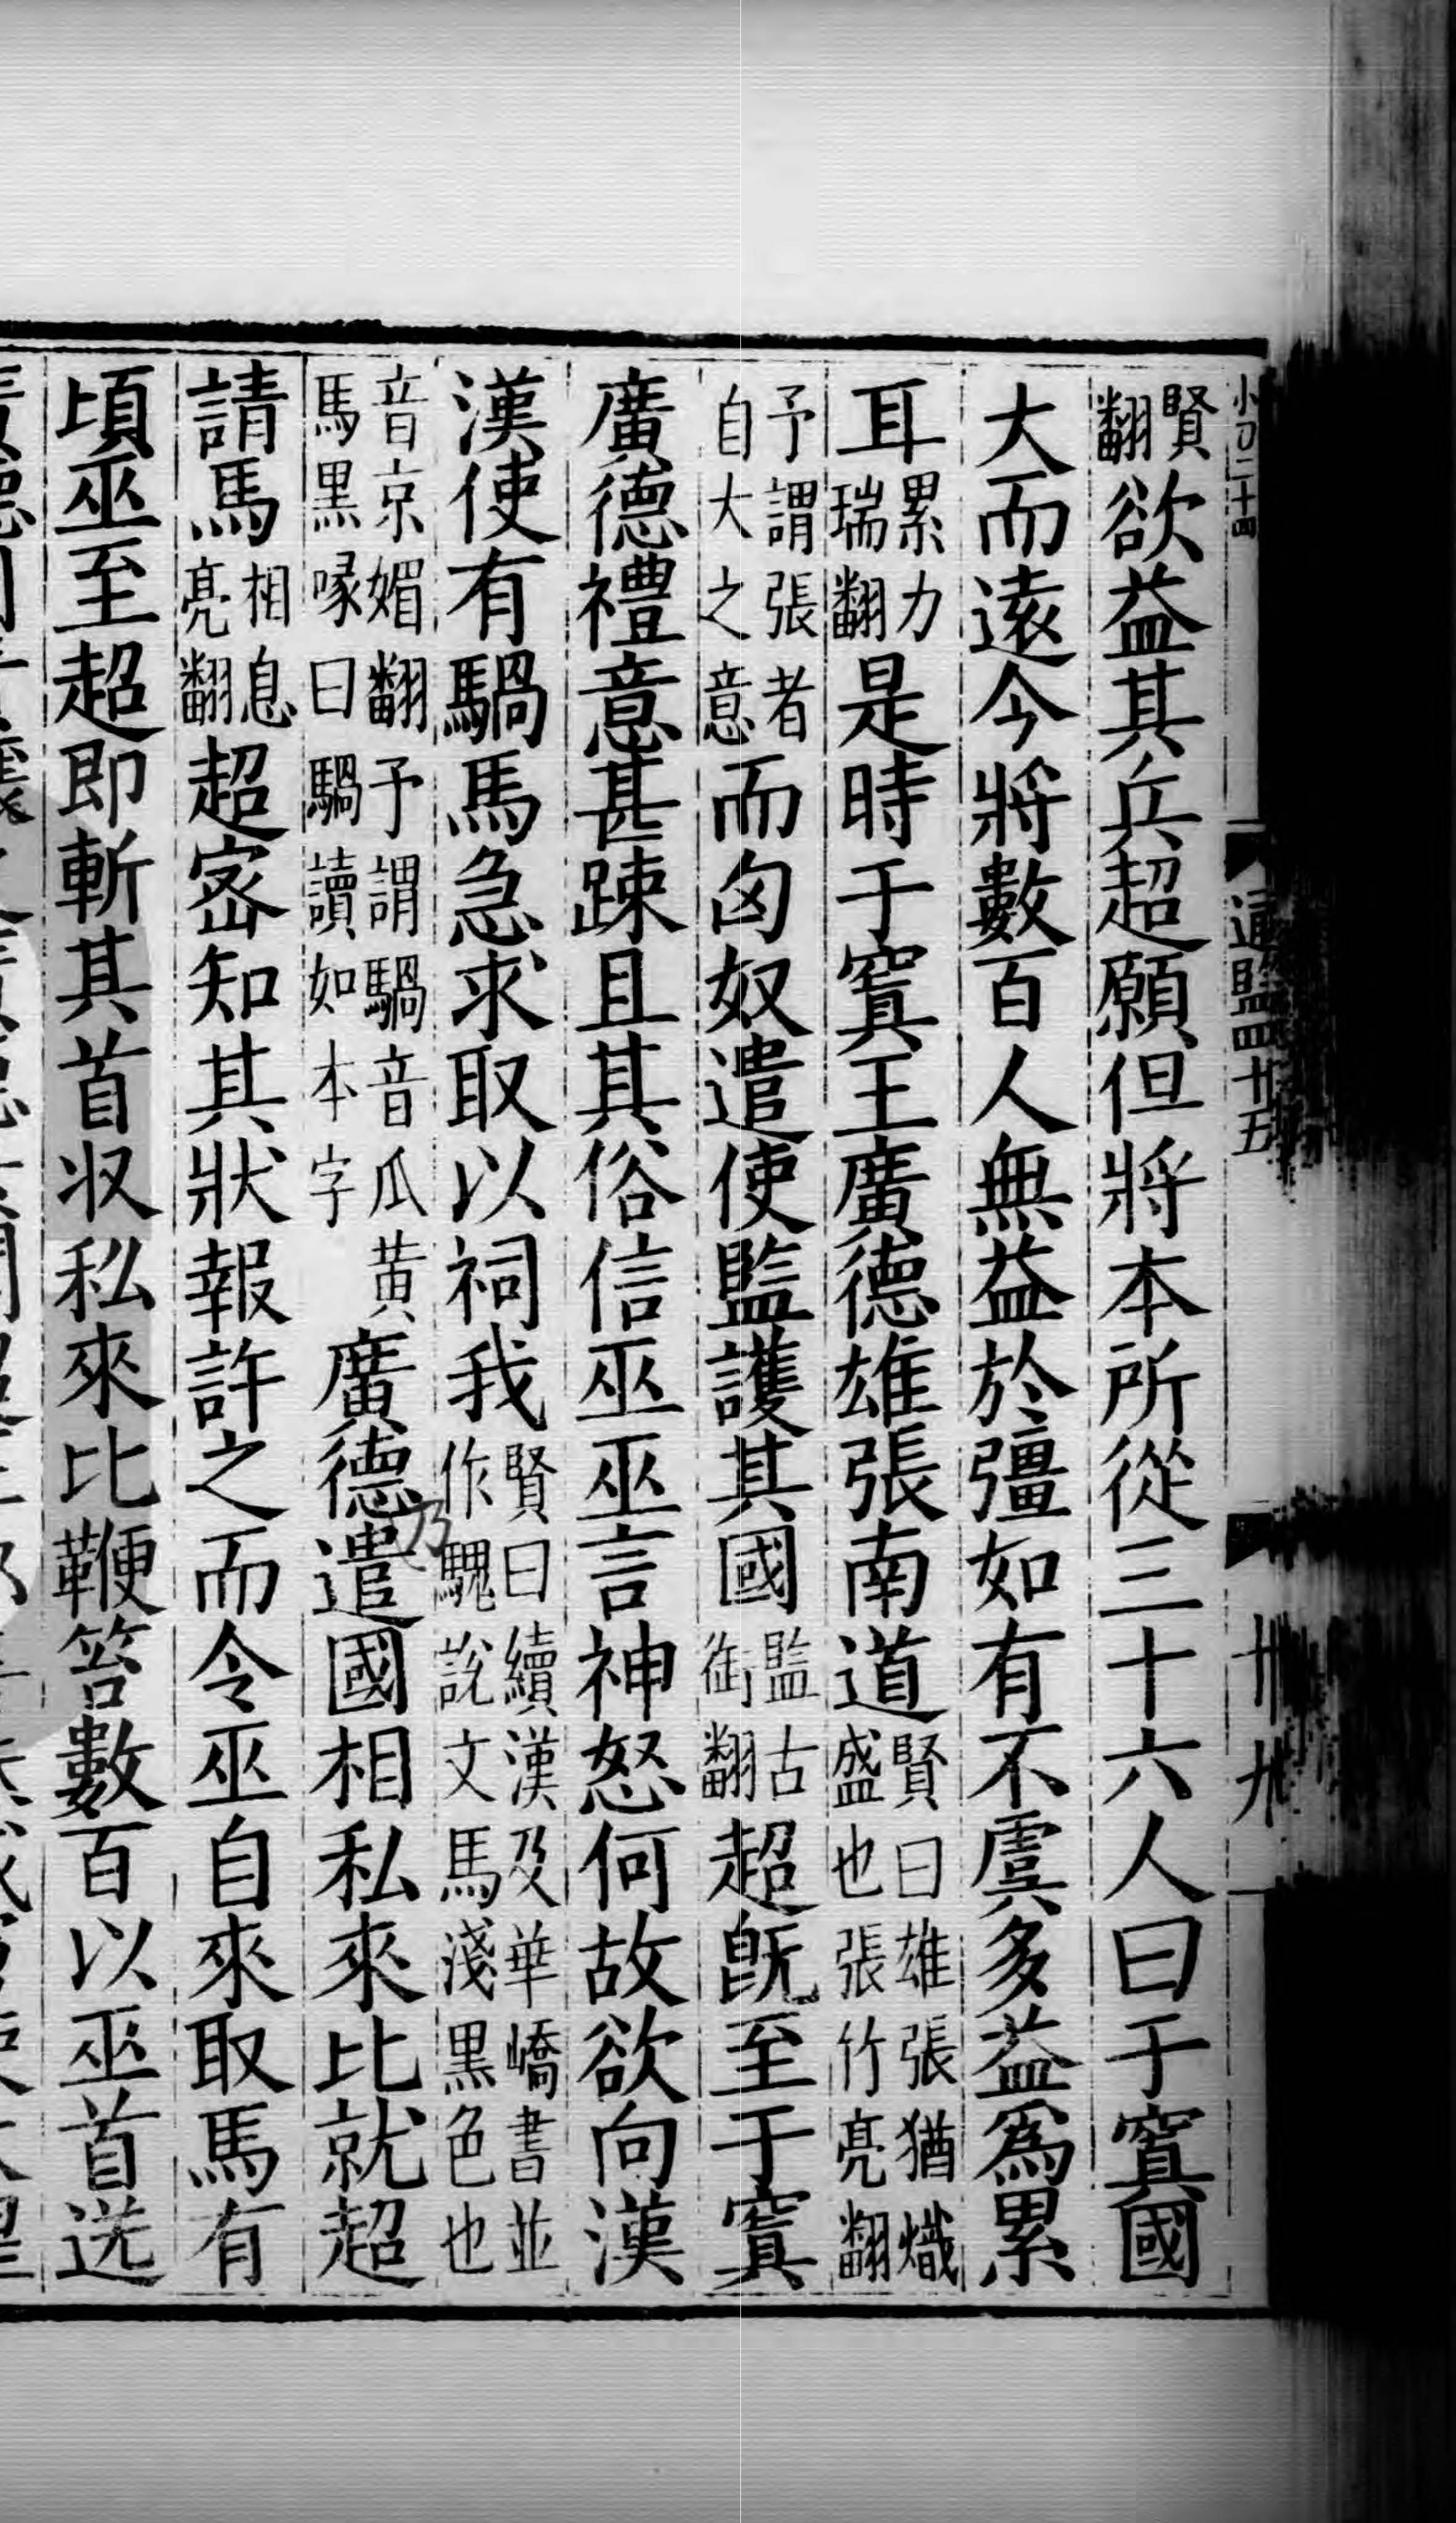 小□二十四 通監四十五 卅九
賢翻欲益其兵超願但將本所從三十六人曰于窴國
大而遠今將數百人無益於彊如有不虞多益爲累
耳累力瑞翻是時于窴王廣德雄張南道賢曰雄張猶熾盛也張竹亮翻
予謂張者自大之意而匈奴遣使監護其國監古銜翻超旣至于窴
廣德禮意甚踈且其俗信巫巫言神怒何故欲向漢
漢使有騧馬急求取以祠我賢曰續漢及華嶠書並作騩說文馬淺黑色也
音京媚翻予謂騧音瓜黄馬黒喙曰騧讀如本字廣德乃遣國相私來比就超
請馬相息亮翻超密知其狀報許之而令巫自來取馬有
頃巫至超即斬其首収私來比鞭笞數百以巫首送